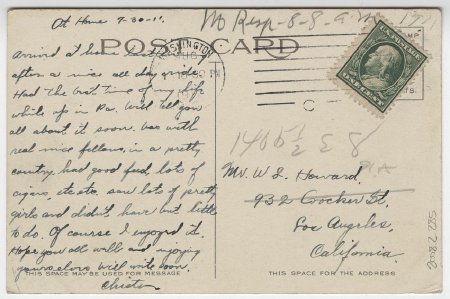 At Home 7-30-11.
No Resp-8-8-
POST CARD
WASHINGTON
Arrived at home last
after a nice all day ride.
Had the best time of my life
while up in Pa. Will tell you
all about it soon. Was with
real nice fellows, in a pretty
country, had good food, lots of
cigars, etc etc. saw lots of pretty
girls and didn't have but little
to do. Of course I enjoyed it.
Hope you all well and enjoying
yourselves will write soon.
THIS SPACE MAY BE USED FOR MESSAGE
1405 1/2 E 8
Mr. W. I. Howard,
932 Crocker St,
Los Angeles,
California.
THIS SPACE IS FOR THE ADDRESS